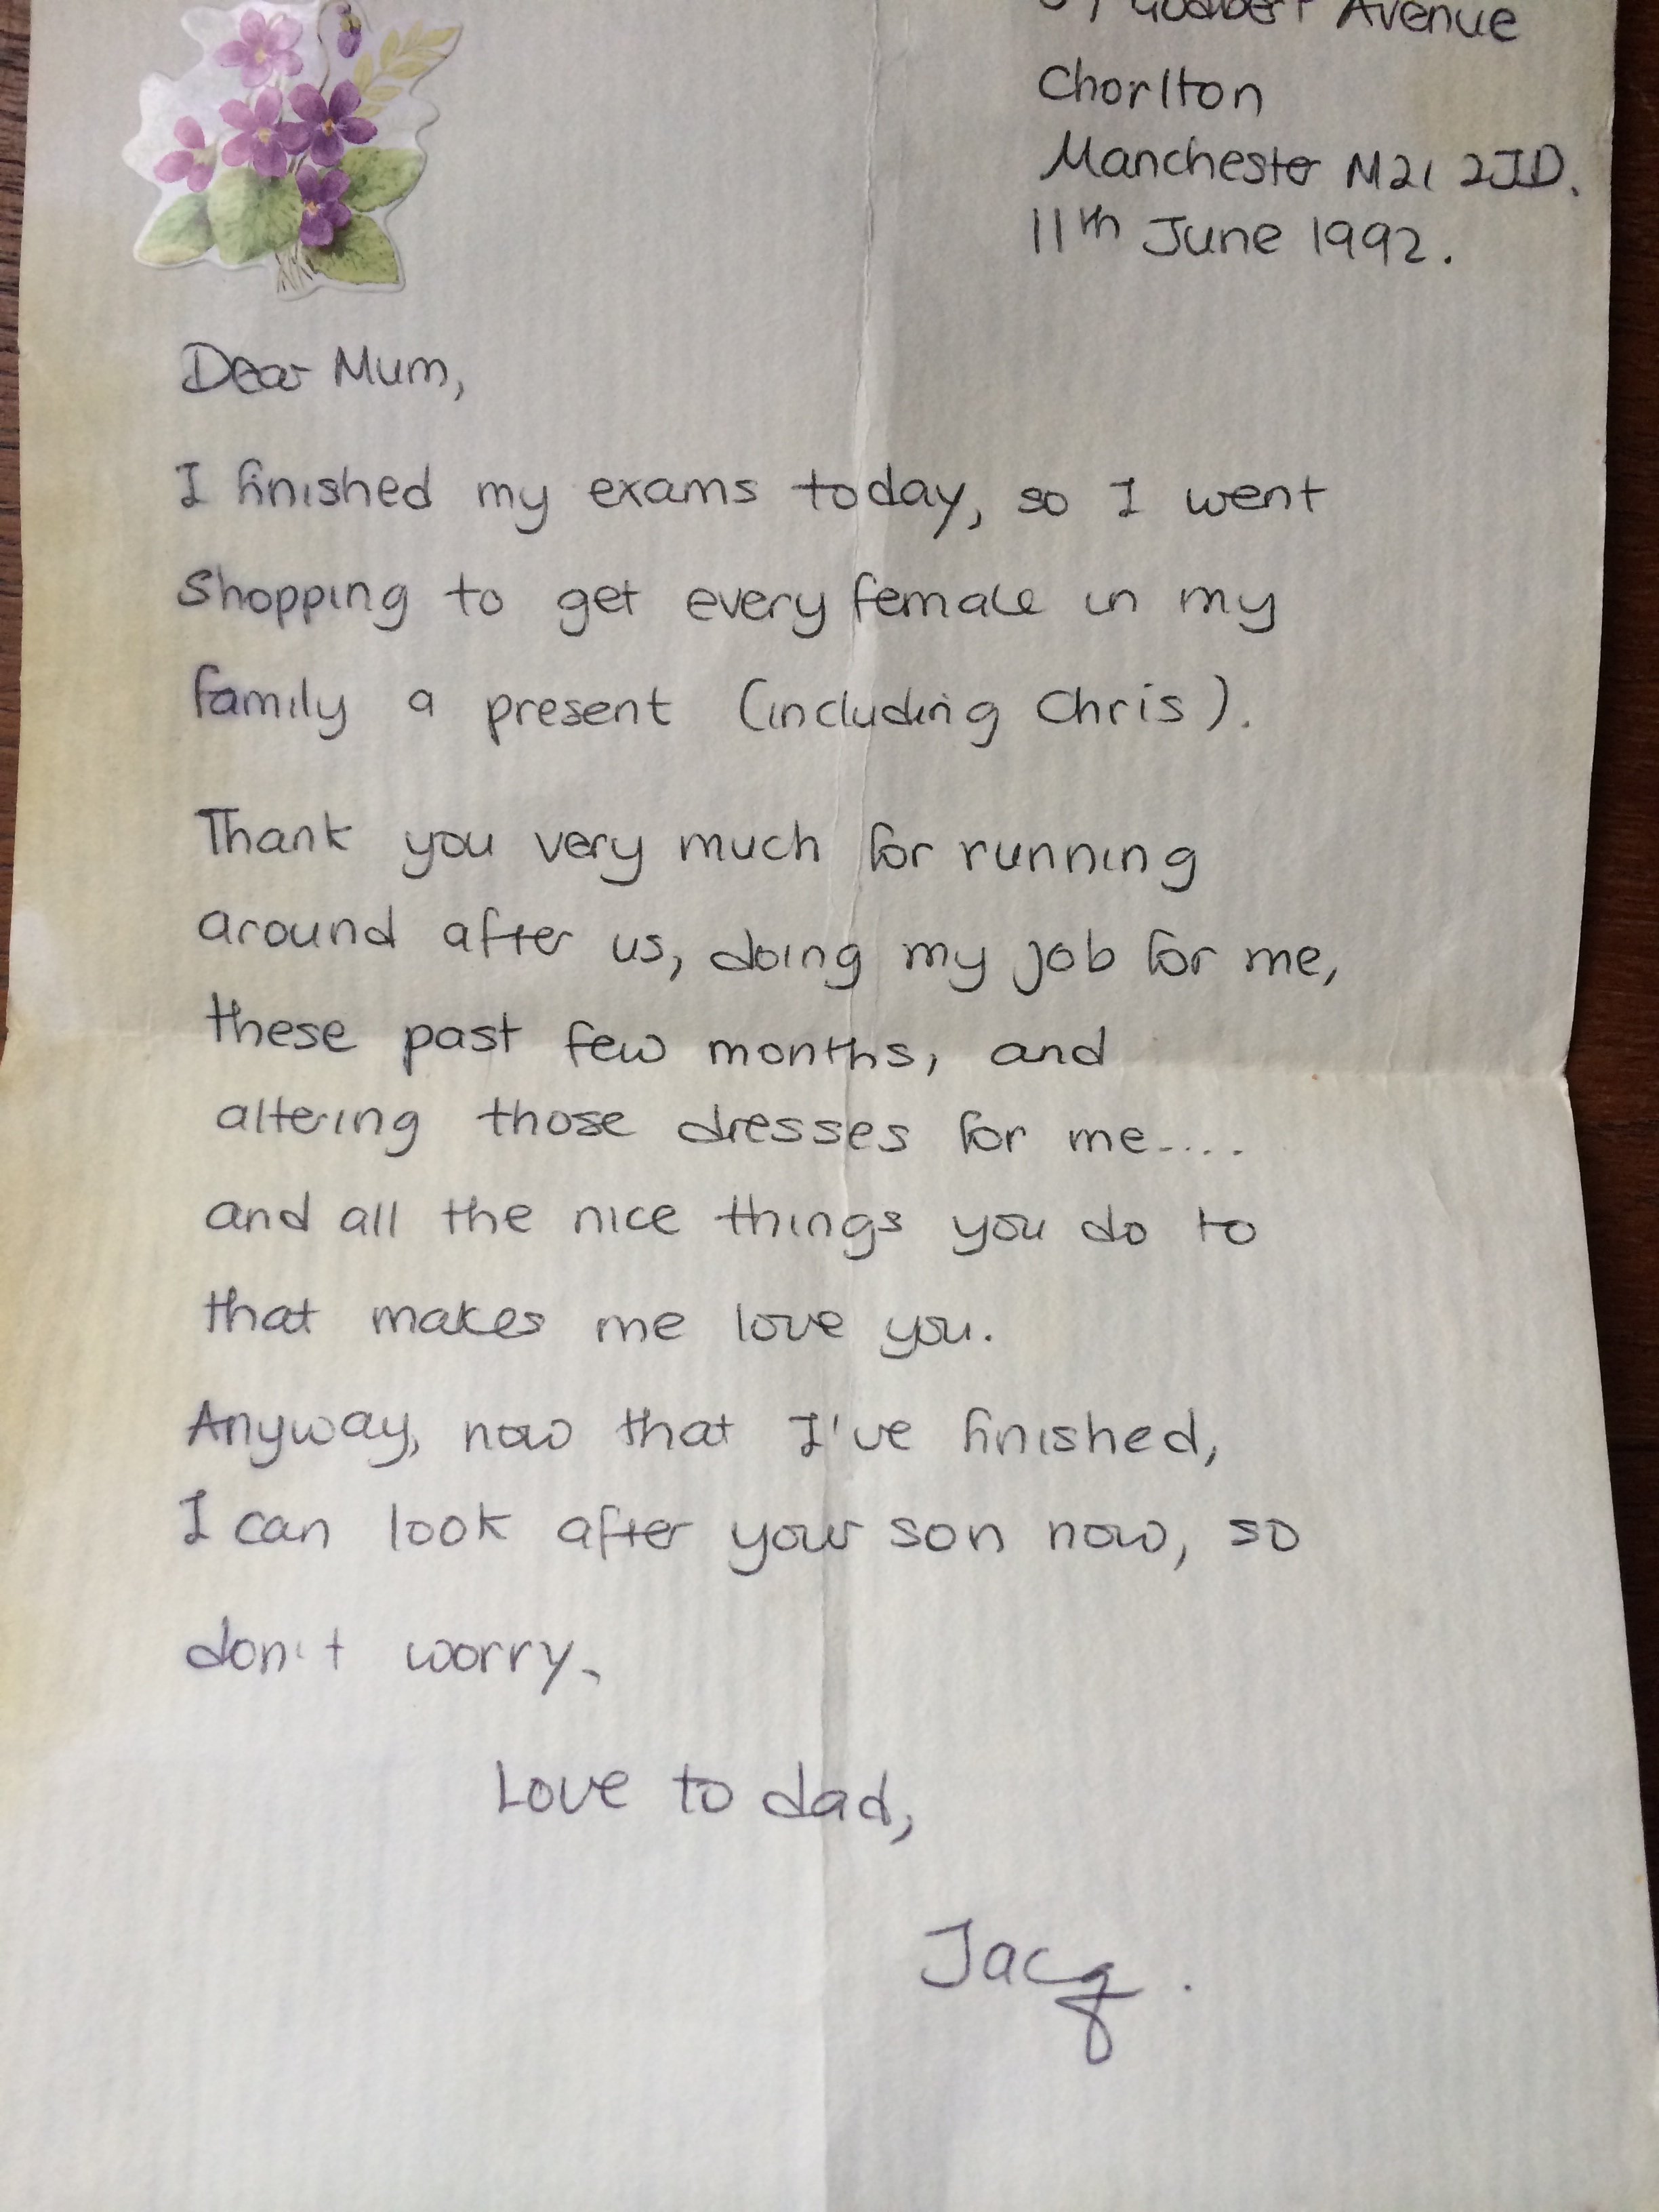 Avenue
Chorlton
Manchester M21 2JD.
11th June 1992.
Dear Mum,
I finished my exams today, so I went
shopping to get every female in my
family a present (including Chris).
Thank you very much for running
around after us, doing my job for me,
these past few months, and
altering those dresses for me....
and all the nice things you do to
that makes me love you.
Anyway, now that I've finished,
I can look after your son now, so
don't worry.
Love to dad,
Jacq.